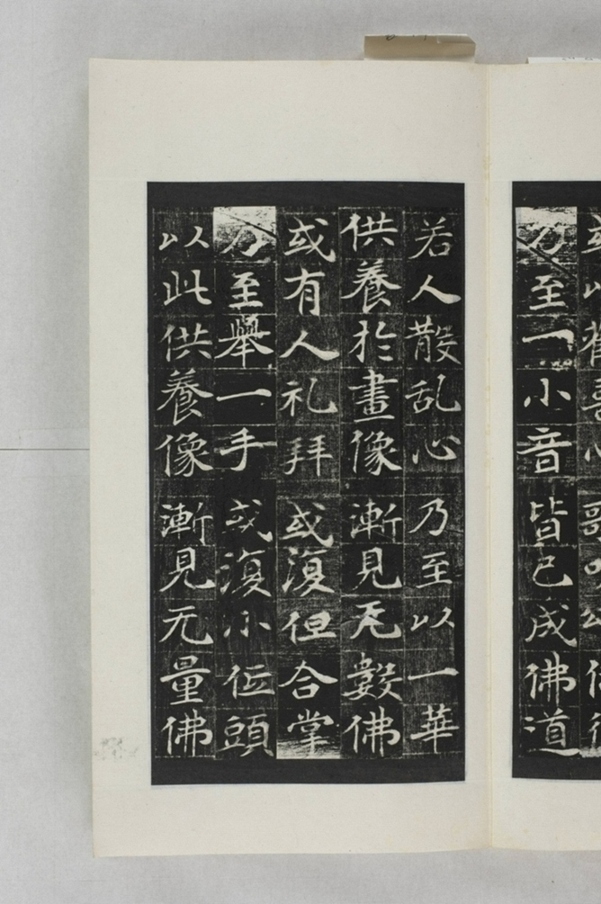 乃至一小音 皆已成佛道
若人散乱心 乃至以一華
供養於畫像 漸見无數佛
或有人礼拜 或復但合掌
乃至舉一手 或復小低頭
以此供養像 漸見无量佛